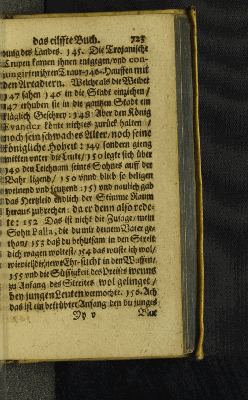 das eilffte Buch. 723
dung des Landes. 145. Die Trojanische
Trupen kamen ihnen entgegen/und con-
jungirten ihren Traur- 146. Hauffen mit
den Arcadiern. Welche als die Weiber
147 sahen 146 in die Stadt einziehen/
147 erhuben sie in der gantzen Stadt ein
kläglich Geschrey: 148 Aber den König
Evander könte nichtes zurück halten/
noch sein schwaches Alter/ noch seine
Königliche Hoheit: 149 sondern gieng
mitten unter die Leute/ 150 legte sich über
149 den Leichnam seines Sohnes auff der
Bahr ligend/ 150 und blieb so beligen
weinend und seufzend: 151 und
das Hertzleid endlich der Stimme Raum
heraus zubrechen: da er denn also rede-
te: 152 Das ist nicht die Zusage/mein
Sohn Pallas/ die du mir deinem Vater ge-
than/ 153 daß du behutsam in den Streit
dich wagen woltest/ 154 das wuste ich wol/
wie viel die neue Ehr-sucht in den Waffen/
155 und die Süssigkeit des Preises wenns
zu Anfang des Streites wol gelinget/
bey jungen Leuten vermochte. 156. Ach
das ist ein betrübter Anfang den du junges
Yy v Blut